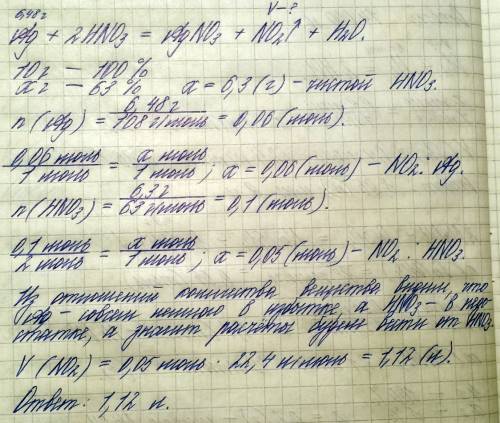 6,48г V-?
Ag + 2HNO₃ = AgNO₃ + NO₂↑ + H₂O.
10г – 100%
xг – 63% x = 6,3(г) – чистой HNO₃.
n(Ag) = 6,48г / 108 г/моль = 0,06(моль).
0,06 моль / 1 моль = x моль / 1 моль; x = 0,06(моль) – NO₂ : Ag.
n(HNO₃) = 6,3г / 63 г/моль = 0,1(моль).
0,1 моль / 2 моль = x моль / 1 моль; x = 0,05(моль) – NO₂ : HNO₃.
Из отношений количества вещества видим, что
Ag – совсем немного в избытке, а HNO₃ – в недо
статке, а значит расчёты будем вити от HNO₃
V(NO₂) = 0,05 моль · 22,4 л/моль = 1,12(л).
Ответ: 1,12 л.